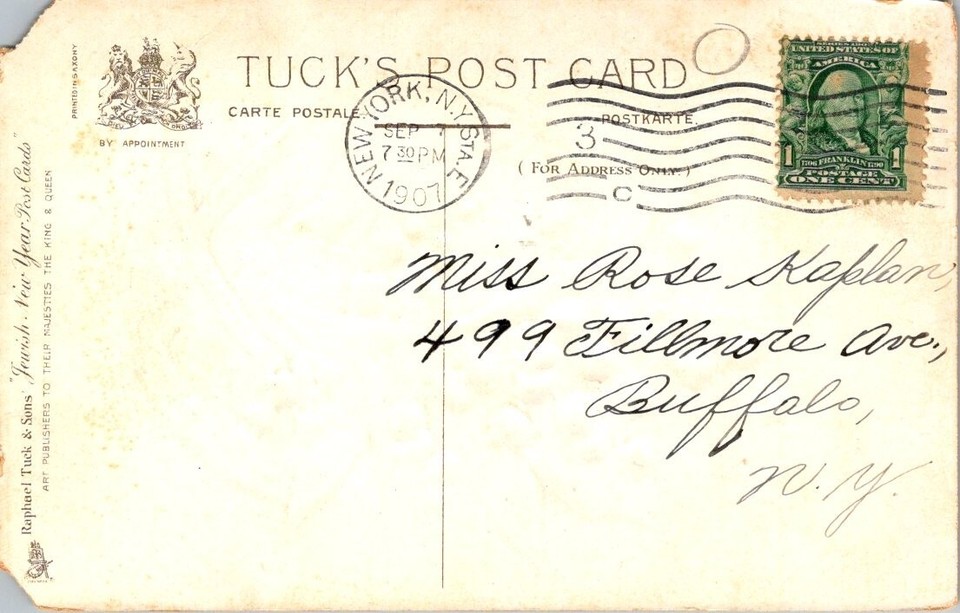 PRINTED IN SAXONY
BY APPOINTMENT
TUCK'S POST CARD
CARTE POSTALE.
POSTKARTE.
(FOR ADDRESS ONLY.)
NEW YORK, N.Y. STA. E
SEP 7
7 30 PM
1907
3
C
UNITED STATES OF
AMERICA
1 FRANKLIN 1
POSTAGE
ONE CENT
Miss Rose Kaplan,
499 Fillmore Ave.,
Buffalo,
N.Y.
Raphael Tuck & Sons' "Jewish New Year Post Cards"
ART PUBLISHERS TO THEIR MAJESTIES THE KING & QUEEN